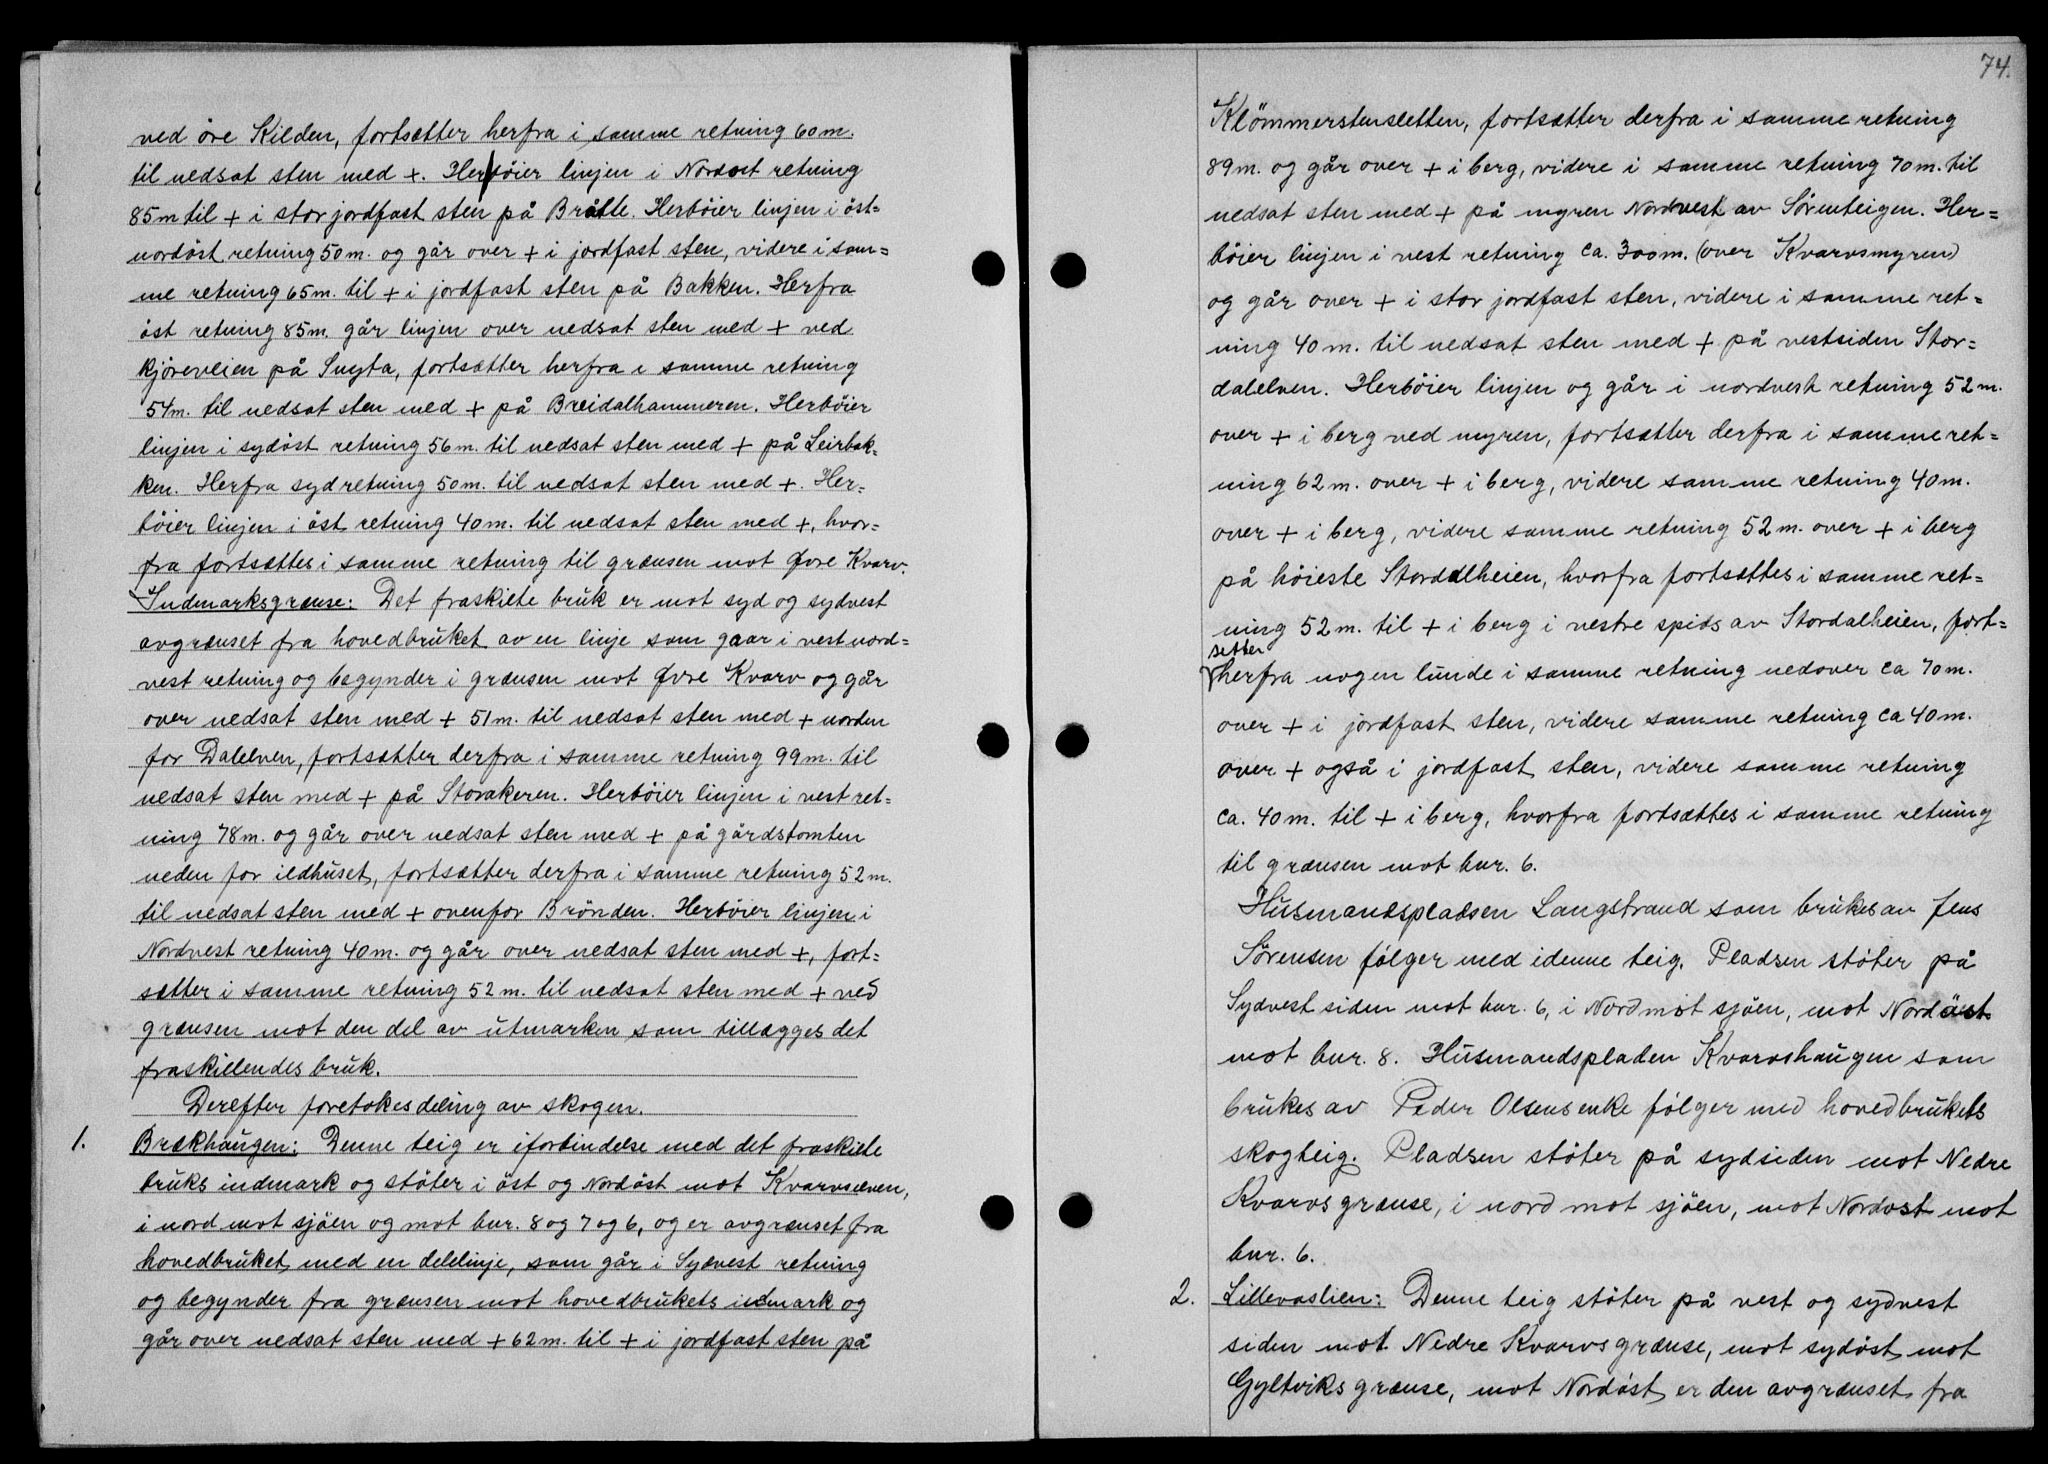 ved öre Kilden, fortsætter herfra i samme retning 60 m.
til nedsat sten med +. Herböier linjen i Nordost retning
85 m til + i stor jordfast sten på Bråtte. Herböier linjen i öst=
nordöst retning 50 m. og går over + i jordfast sten, videre i sam=
me retning 65 m. til + i jordfast sten på Bakken. Herfra
öst retning 85 m. går linjen over nedsat sten med + ved
kjöreveien på Snyta, fortsætter herfra i samme retning
54 m. til nedsat sten med + på Breidalhammeren. Herböier
linjen i sydöst retning 56 m. til nedsat sten med + på Leirbak=
ken. Herfra syd retning 50 m. til nedsat sten med +. Her=
böier linjen i öst retning 40 m. til nedsat sten med +, hvor=
fra fortsættes i samme retning til grænsen mot Øvre Kvarv.
Indmarksgrænse: Det fraskilte bruk er mot syd og sydvest
avgrænset fra hovedbruket av en linje som gaar i vest nord=
vest retning og begynder i grænsen mot Øvre Kvarv og går
over nedsat sten med + 51 m. til nedsat sten med + norden
for Dalelven, fortsætter derfra i samme retning 99 m. til
nedsat sten med + på Storakeren. Herböier linjen i vest ret=
ning 78 m. og går over nedsat sten med + på gårdstomten
neden for ildhuset, fortsætter derfra i samme retning 52 m.
til nedsat sten med + ovenfor Brönden. Herböier linjen i
Nordvest retning 40 m. og går over nedsat sten med +, fort=
sætter i samme retning 52 m. til nedsat sten med + ved
grænsen mot den del av utmarken som tillægges det
fraskillendes bruk.
Derefter foretokes deling av skogen.
1. Brækhaugen: Denne teig er i forbindelse med det fraskilte
bruks indmark og stöter i öst og Nordöst mot Kvarvselven,
i nord mot sjöen og mot bnr. 8 og 7 og 6, og er avgrænset fra
hovedbruket med en delelinje, som går i Sydvest retning
og begynder fra grænsen mot hovedbrukets indmark og
går over nedsat sten med + 62 m. til + i jordfast sten på
74.
Klömmerstensletten, fortsætter derfra i samme retning
89 m. og går over + i berg, videre i samme retning 70 m. til
nedsat sten med + på myren Nordvest av Sörenteigen. Her=
böier linjen i vest retning ca. 300 m. (over Kvarvsmyren)
og går over + i stor jordfast sten, videre i samme ret=
ning 40 m. til nedsat sten med + på vestsiden Stor=
dalelven. Herböier linjen og går i nordvest retning 52 m.
over + i berg ved myren, fortsætter derfra i samme ret=
ning 62 m. over + i berg, videre samme retning 40 m.
over + i berg, videre samme retning 52 m. over + i berg
på höieste Stordalheien, hvorfra fortsættes i samme ret=
ning 52 m. til + i berg i vestre spids av Stordalheien, fort=
setter
herfra nogen lunde i samme retning nedover ca 70 m.
over + i jordfast sten, videre samme retning ca 40 m.
over + også i jordfast sten, videre samme retning
ca. 40 m. til + i berg, hvorfra fortsættes i samme retning
til grænsen mot bnr. 6.
Husmandspladsen Langstrand som brukes av Jens
Sörensen fölger med i denne teig. Pladsen stöter på
Sydvest siden mot bnr. 6, i Nord mot sjöen, mot Nordöst
mot bnr. 8. Husmandspladen Kvarvshaugen som
brukes av Peder Olsens enke fölger med hovedbrukets
skogteig. Pladsen stöter på sydsiden mot Nedre
Kvarvs grænse, i nord mot sjöen, mot Nordost mot
bnr. 6.
2. Lillevaslien: Denne teig stöter på vest og sydvest
siden mot Nedre Kvarvs grænse, mot sydöst mot
Gyltviks grænse, mot Nordöst er den avgrænset fra